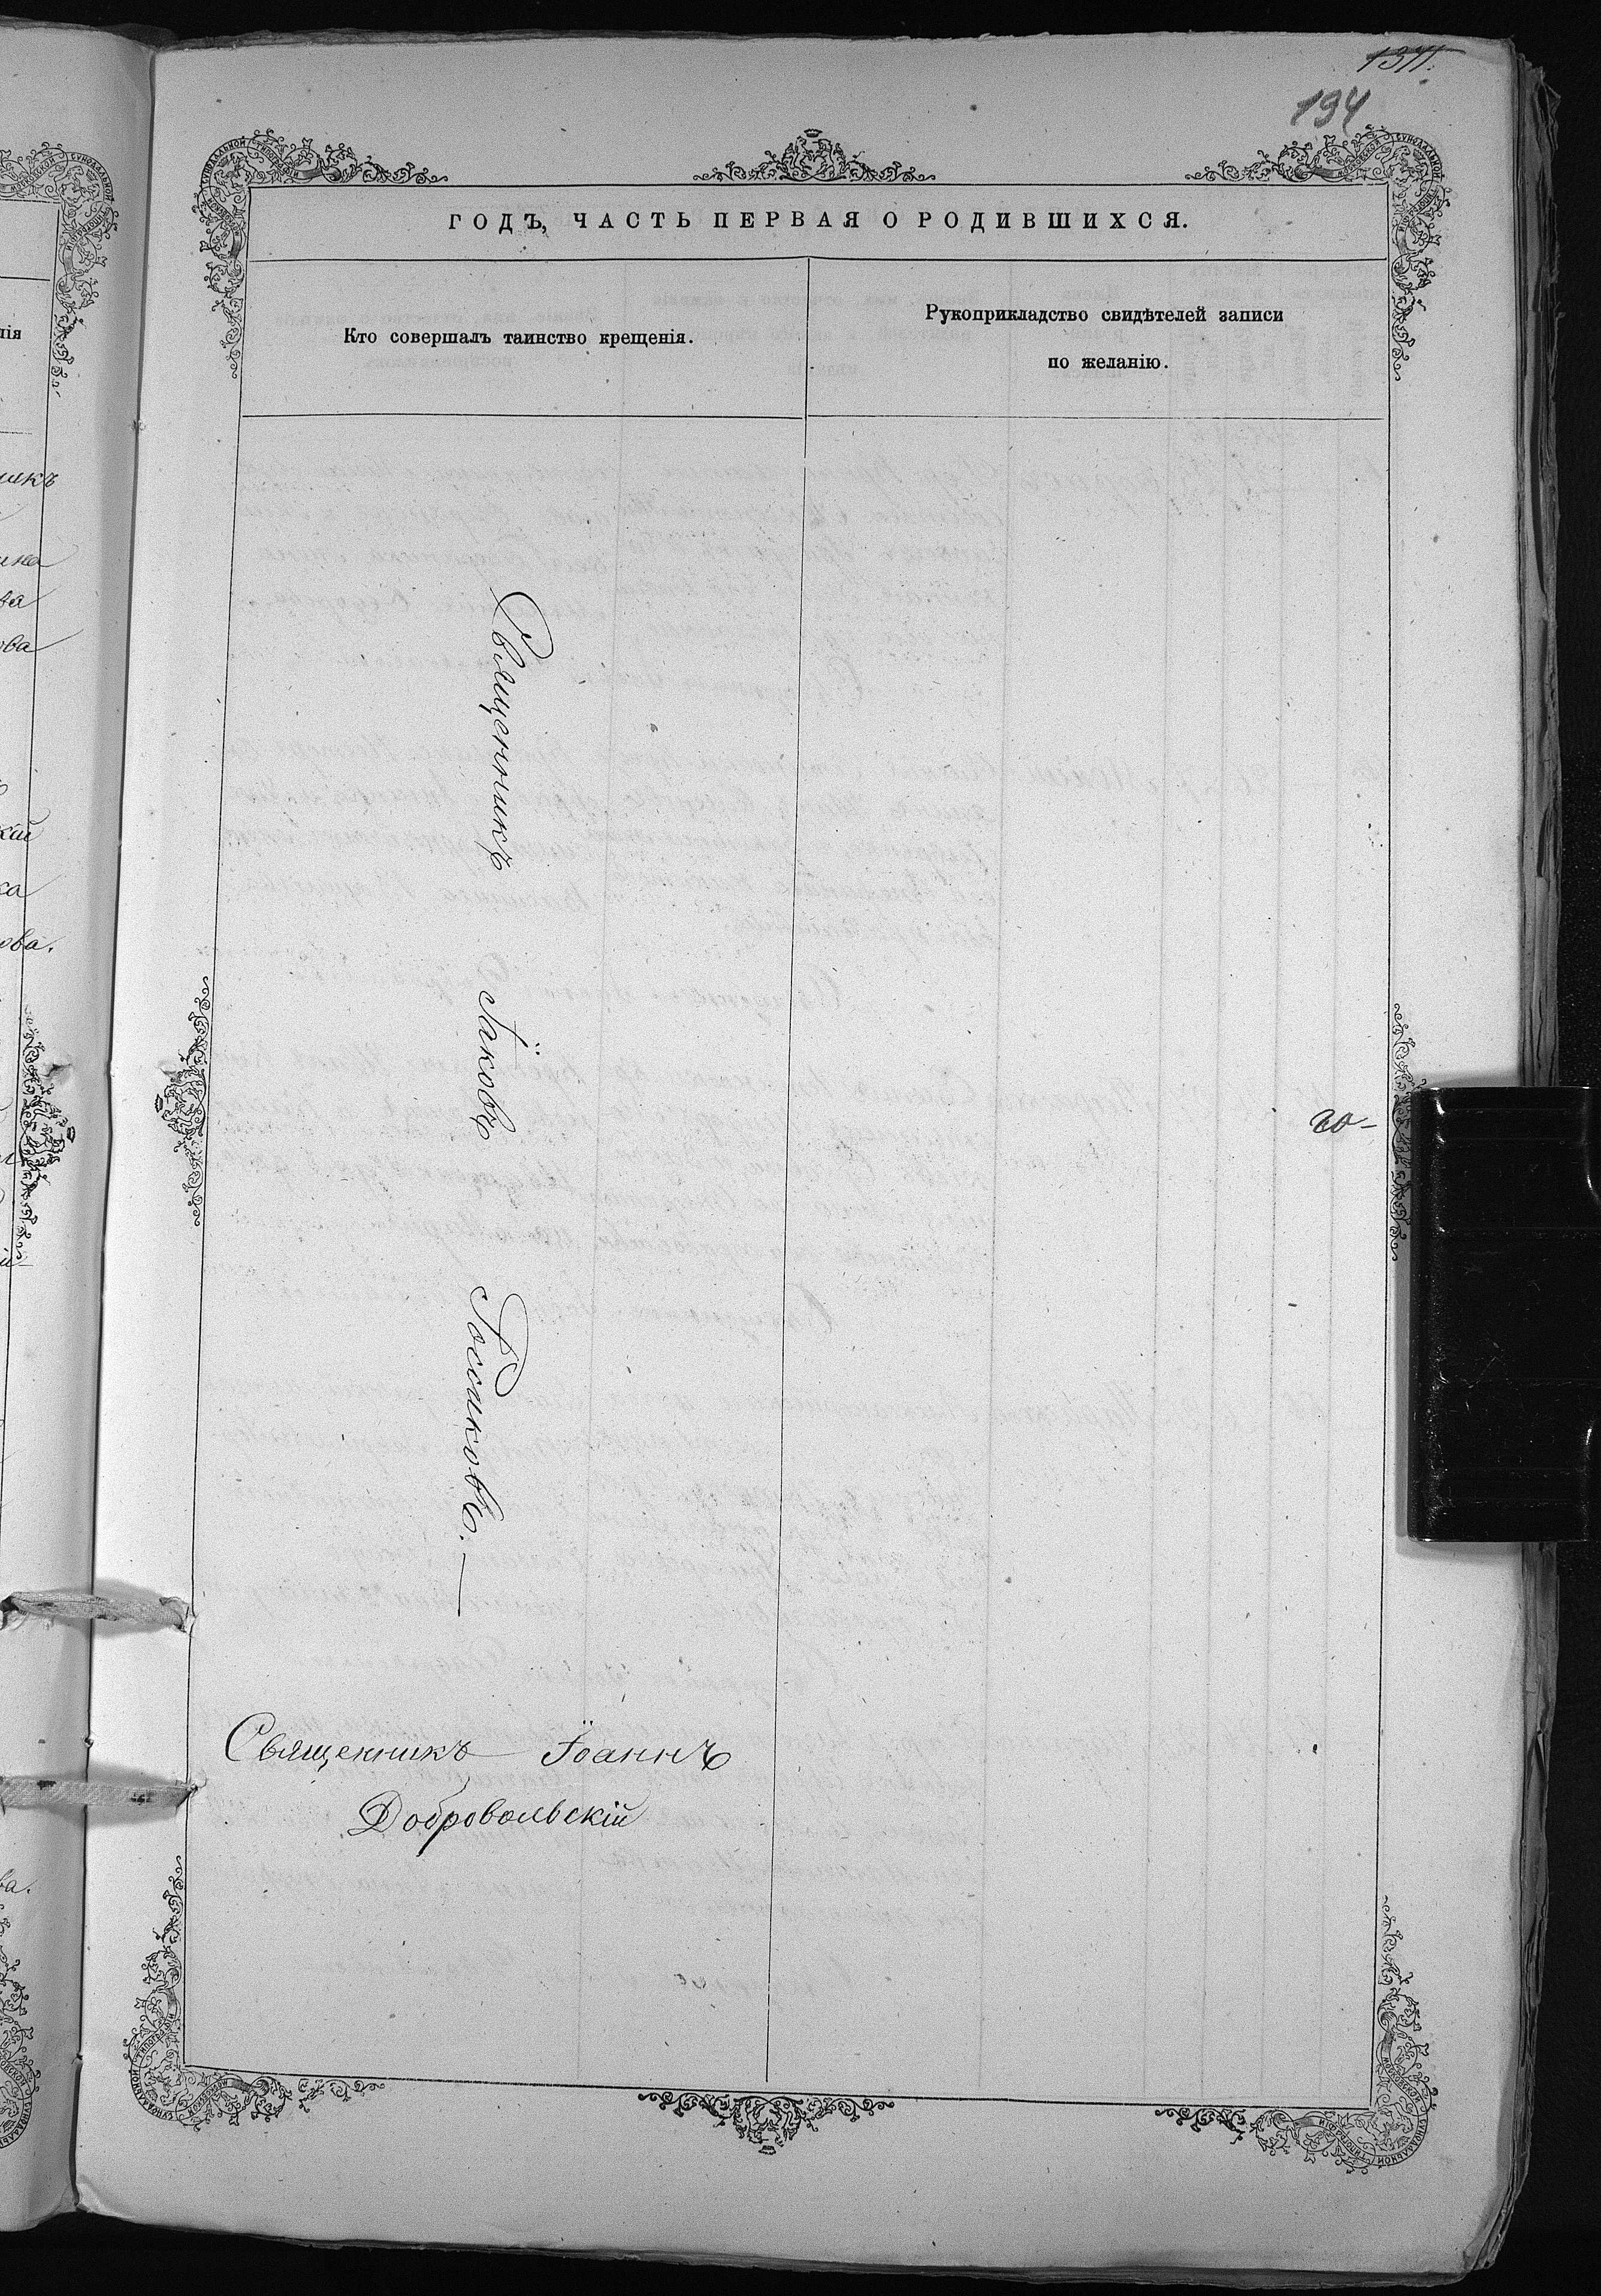 194
ГОДЪ, ЧАСТЬ ПЕРВАЯ О РОДИВШИХСЯ.
Кто совершалъ таинство крещенія.
Рукоприкладство свидѣтелей записи
по желанію.
Священникъ Іаковъ Госсиковъ.—
20-
Священникъ Іоаннъ
Добровольскій